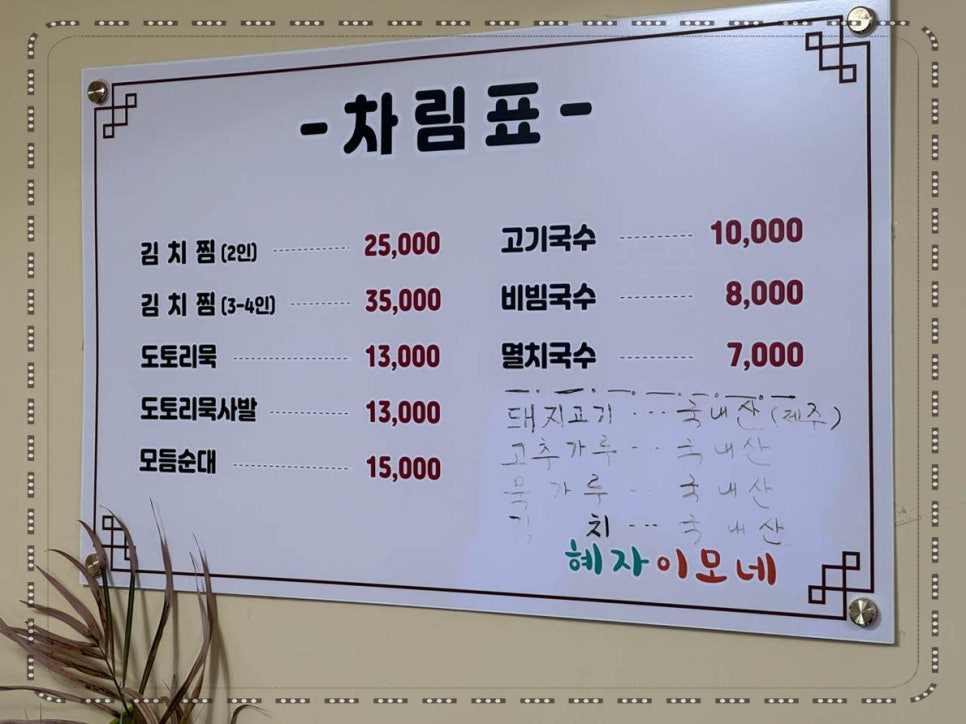 - 차림표 -
김치찜 (2인) 25,000
김치찜 (3-4인) 35,000
도토리묵 13,000
도토리묵사발 13,000
모듬순대 15,000
고기국수 10,000
비빔국수 8,000
멸치국수 7,000
돼지고기 ··· 국내산 (제주)
고추가루 ·· 국내산
묵가루 ·· 국내산
김치 ··· 국내산
혜자이모네